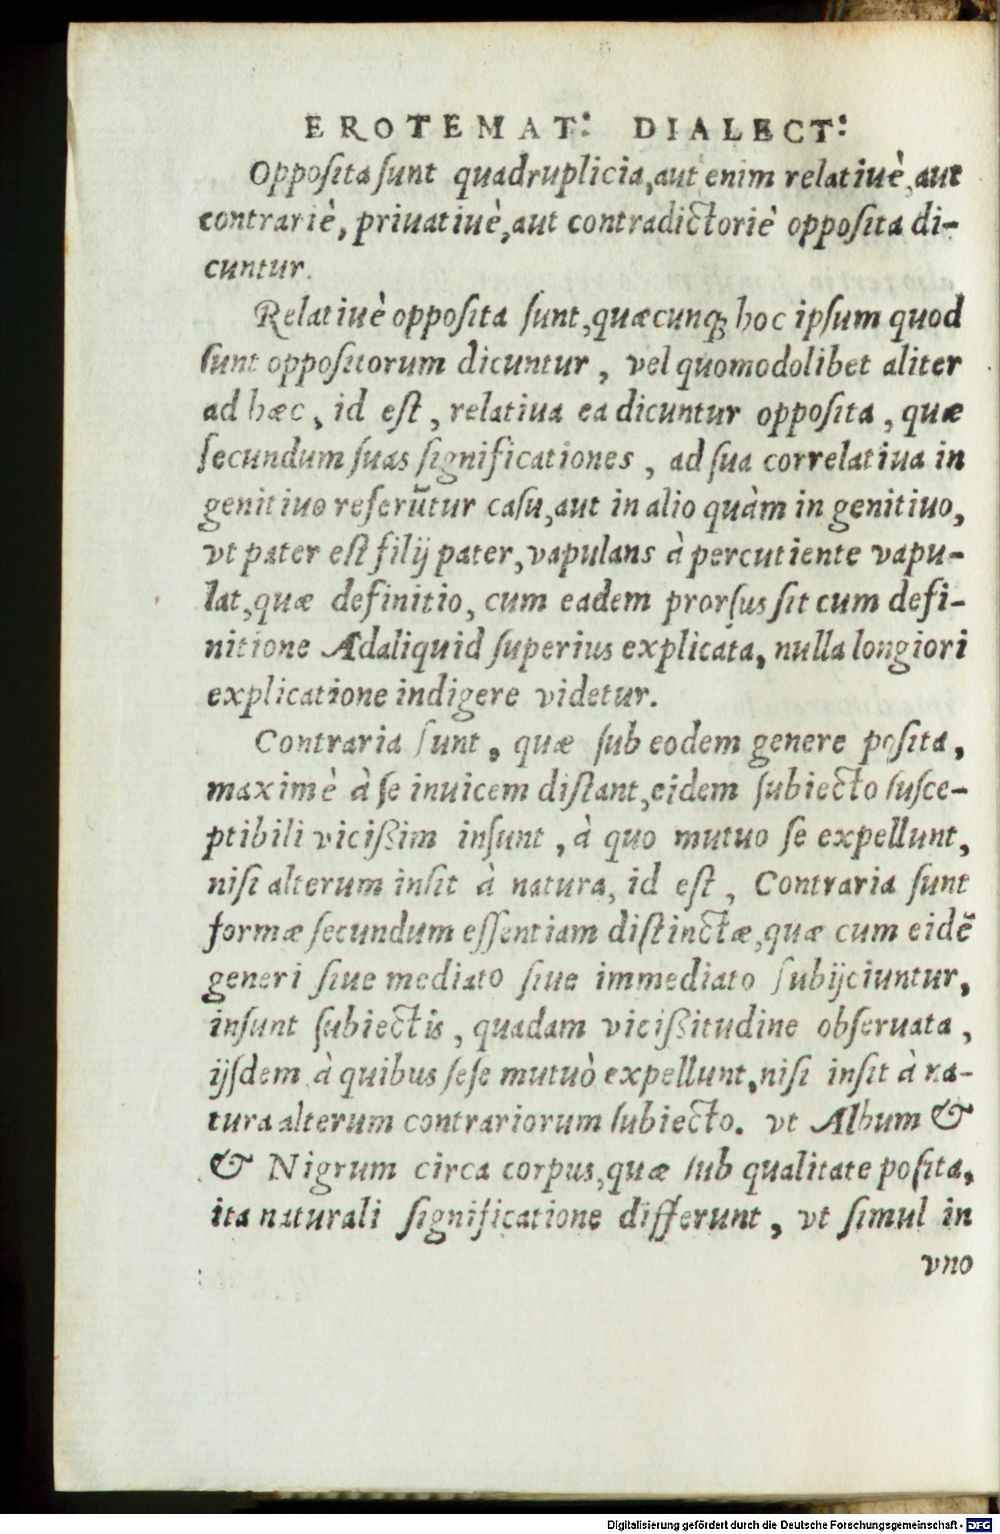 EROTEMAT: DIALECT:
Opposita sunt quadruplicia, aut enim relatiuè, aut
contrariè, priuatiuè, aut contradictoriè opposita di-
cuntur.
Relatiuè opposita sunt, quæcunq; hoc ipsum quod
sunt oppositorum dicuntur, vel quomodolibet aliter
ad hæc, id est, relatiua ea dicuntur opposita, quæ
secundum suas significationes, ad sua correlatiua in
genitiuo referūtur casu, aut in alio quàm in genitiuo,
vt pater est filij pater, vapulans à percutiente vapu-
lat, quæ definitio, cum eadem prorsus sit cum defi-
nitione Adaliquid superius explicata, nulla longiori
explicatione indigere videtur.
Contraria sunt, quæ sub eodem genere posita,
maximè à se inuicem distant, eidem subiecto susce-
ptibili vicißim insunt, à quo mutuo se expellunt,
nisi alterum insit à natura, id est, Contraria sunt
formæ secundum essentiam distinctæ, quæ cum eidē
generi siue mediato siue immediato subijciuntur,
insunt subiectis, quadam vicißitudine obseruata,
ijsdem à quibus sese mutuò expellunt, nisi insit à na-
tura alterum contrariorum subiecto. vt Album &
& Nigrum circa corpus, quæ sub qualitate posita,
ita naturali significatione differunt, vt simul in
vno
Digitalisierung gefördert durch die Deutsche Forschungsgemeinschaft - DFG